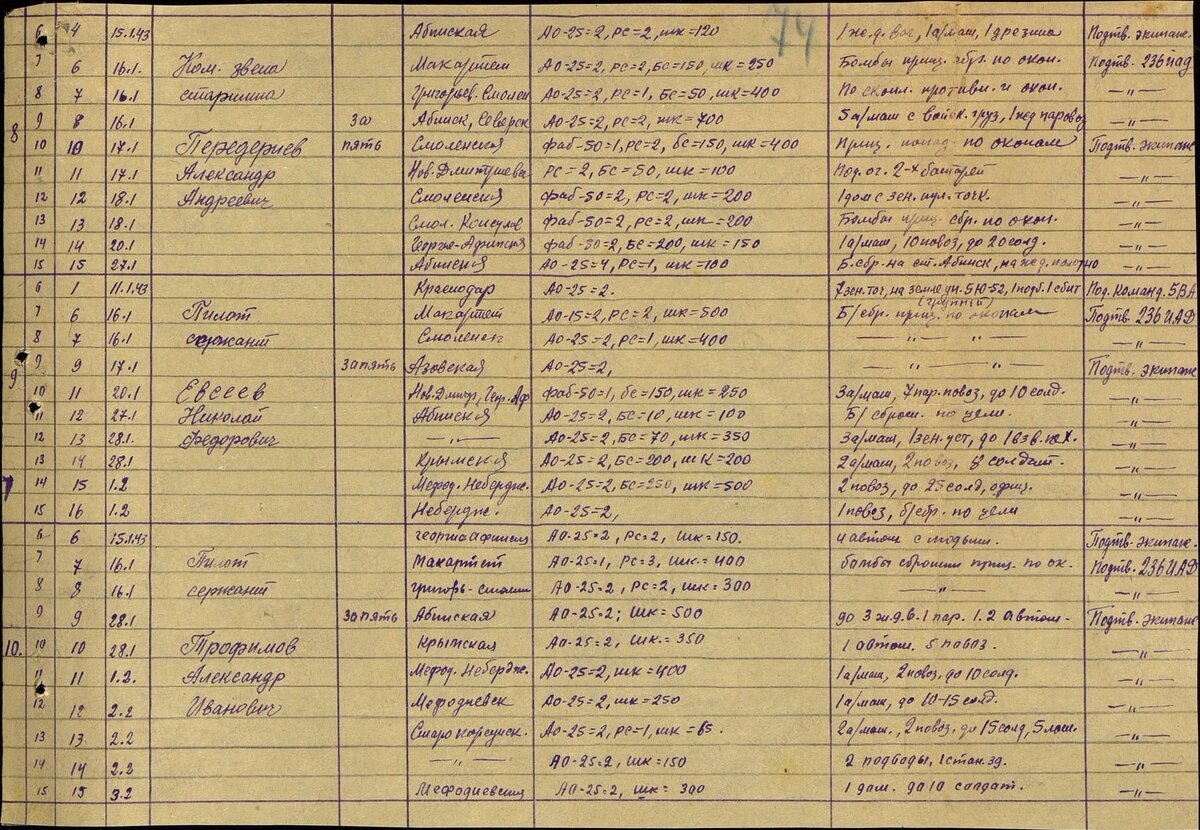 74
6 4 15.1.43 Абинская АО-25=2, РС=2, шк=120 1 же.д. ваг, 1а/маш, 1 дрезина Подтв. экипаж
7 6 16.1. Ком. звена Макартет АО-25=2, РС=2, БС=150, шк=250 Бомбы приц. сбр. по окоп. Подтв. 236 иад
8 7 16.1 старшина Григорьев. Смолен АО-25=2, РС=1, БС=50, шк=400 По скопл. противн. и окоп. —„—
8 9 8 16.1 за Абинск, Северск АО-25=2, РС=2, шк=700 5а/маш с войск. груз, 1 жед паровоз —„—
10 10 17.1 Передериев пять Смоленская фаб-50=1, РС=2, БС=150, шк=400 Приц. попад. по окопам Подтв. экипаж
11 11 17.1 Александр Нов. Дмитриева РС=2, БС=50, шк=100 Под. ог. 2-х батарей —„—
12 12 18.1 Андреевич Смоленская фаб-50=2, РС=2, шк=200 1 дом с зен. пул. точк. —„—
13 13 18.1 Смол. фаб-50=2, РС=2, шк=200 Бомбы приц. сбр. по окоп. —„—
14 14 20.1 Георгие-Афипская фаб-50=2, БС=200, шк=150 1а/маш, 10 повоз, до 20 солд. —„—
15 15 27.1 Абинская АО-25=4, РС=1, шк=100 Б. сбр. на ст. Абинск, на жед. полотно —„—
6 1 11.1.43 Краснодар АО-25=2. 7 зен. точ, на земле ун. 5 Ю-52, 1 подб. 1 сбит Под. Команд. 5ВА
(группой)
7 6 16.1 Пилот Макартет АО-15=2, РС=2, шк=500 Б/сбр. приц. по окопам Подтв. 236 ИАД
8 7 16.1 сержант Смоленск АО-25=2, РС=1, шк=400 —„— —„— —„—
9 9 9 17.1 за пять Азовская АО-25=2, —„— —„— Подтв. экипаж
10 11 20.1 Евсеев Нов. Дмитр, Геор. Аф фаб-50=1, бс=150, шк=250 3а/маш, 7 пар. повоз, до 10 солд. —„—
11 12 27.1 Николай Абинская АО-25=2, БС=10, шк=100 Б/ сброш. по цели. —„—
12 13 28.1. Федорович —„— АО-25=2, БС=70, шк=350 3а/маш, 1 зен. уст, до 1 взв. пех. —„—
13 14 28.1 Крымская АО-25=2, БС=200, шк=200 2а/маш, 2 повоз, 8 солдат. —„—
14 15 1.2 Мефод. Неберджс. АО-25=2, БС=250, шк=500 2 повоз, до 25 солд, офиц. —„—
15 16 1.2 Небердж. АО-25=2, 1 повоз, б/сбр. по цели —„—
6 6 15.1.43 георгиафипск АО-25=2, РС=2, шк=150. 4 автом с людьми. Подтв. экипаж.
7 7 16.1 Пилот Макартет АО-25=1, РС=3, шк=400 бомбы сброшен приц. по ок. Подтв. 236 ИАД
8 8 16.1 сержант григорь-смолен АО-25=2, РС=2, шк=300 —„— —„—
9 9 28.1 за пять Абинская АО-25=2; шк=500 до 3 ж.д.в. 1 пар. 1.2 автом. Подтв. экипаж
10. 10 10 28.1 Трофимов Крымская АО-25=2, шк=350 1 автом. 5 повоз. —„—
11 11 1.2. Александр Мефод. Неберджс. АО-25=2, шк=400 1а/маш, 2 повоз, до 10 солд. —„—
12 12 2.2 Иванович Мефодиевск АО-25=2, шк=250 1а/маш, до 10-15 солд. —„—
13 13 2.2 Старокорсунск. АО-25=2, РС=1, шк=65. 2а/маш., 2 повоз, до 15 солд, 5 лош. —„—
14 14 2.2 —„— АО-25=2, шк=150 2 подводы, 1 стан. зд. —„—
15 15 3.2 Мефодиевский АО-25=2, шк=300 1 дом. до 10 солдат. —„—